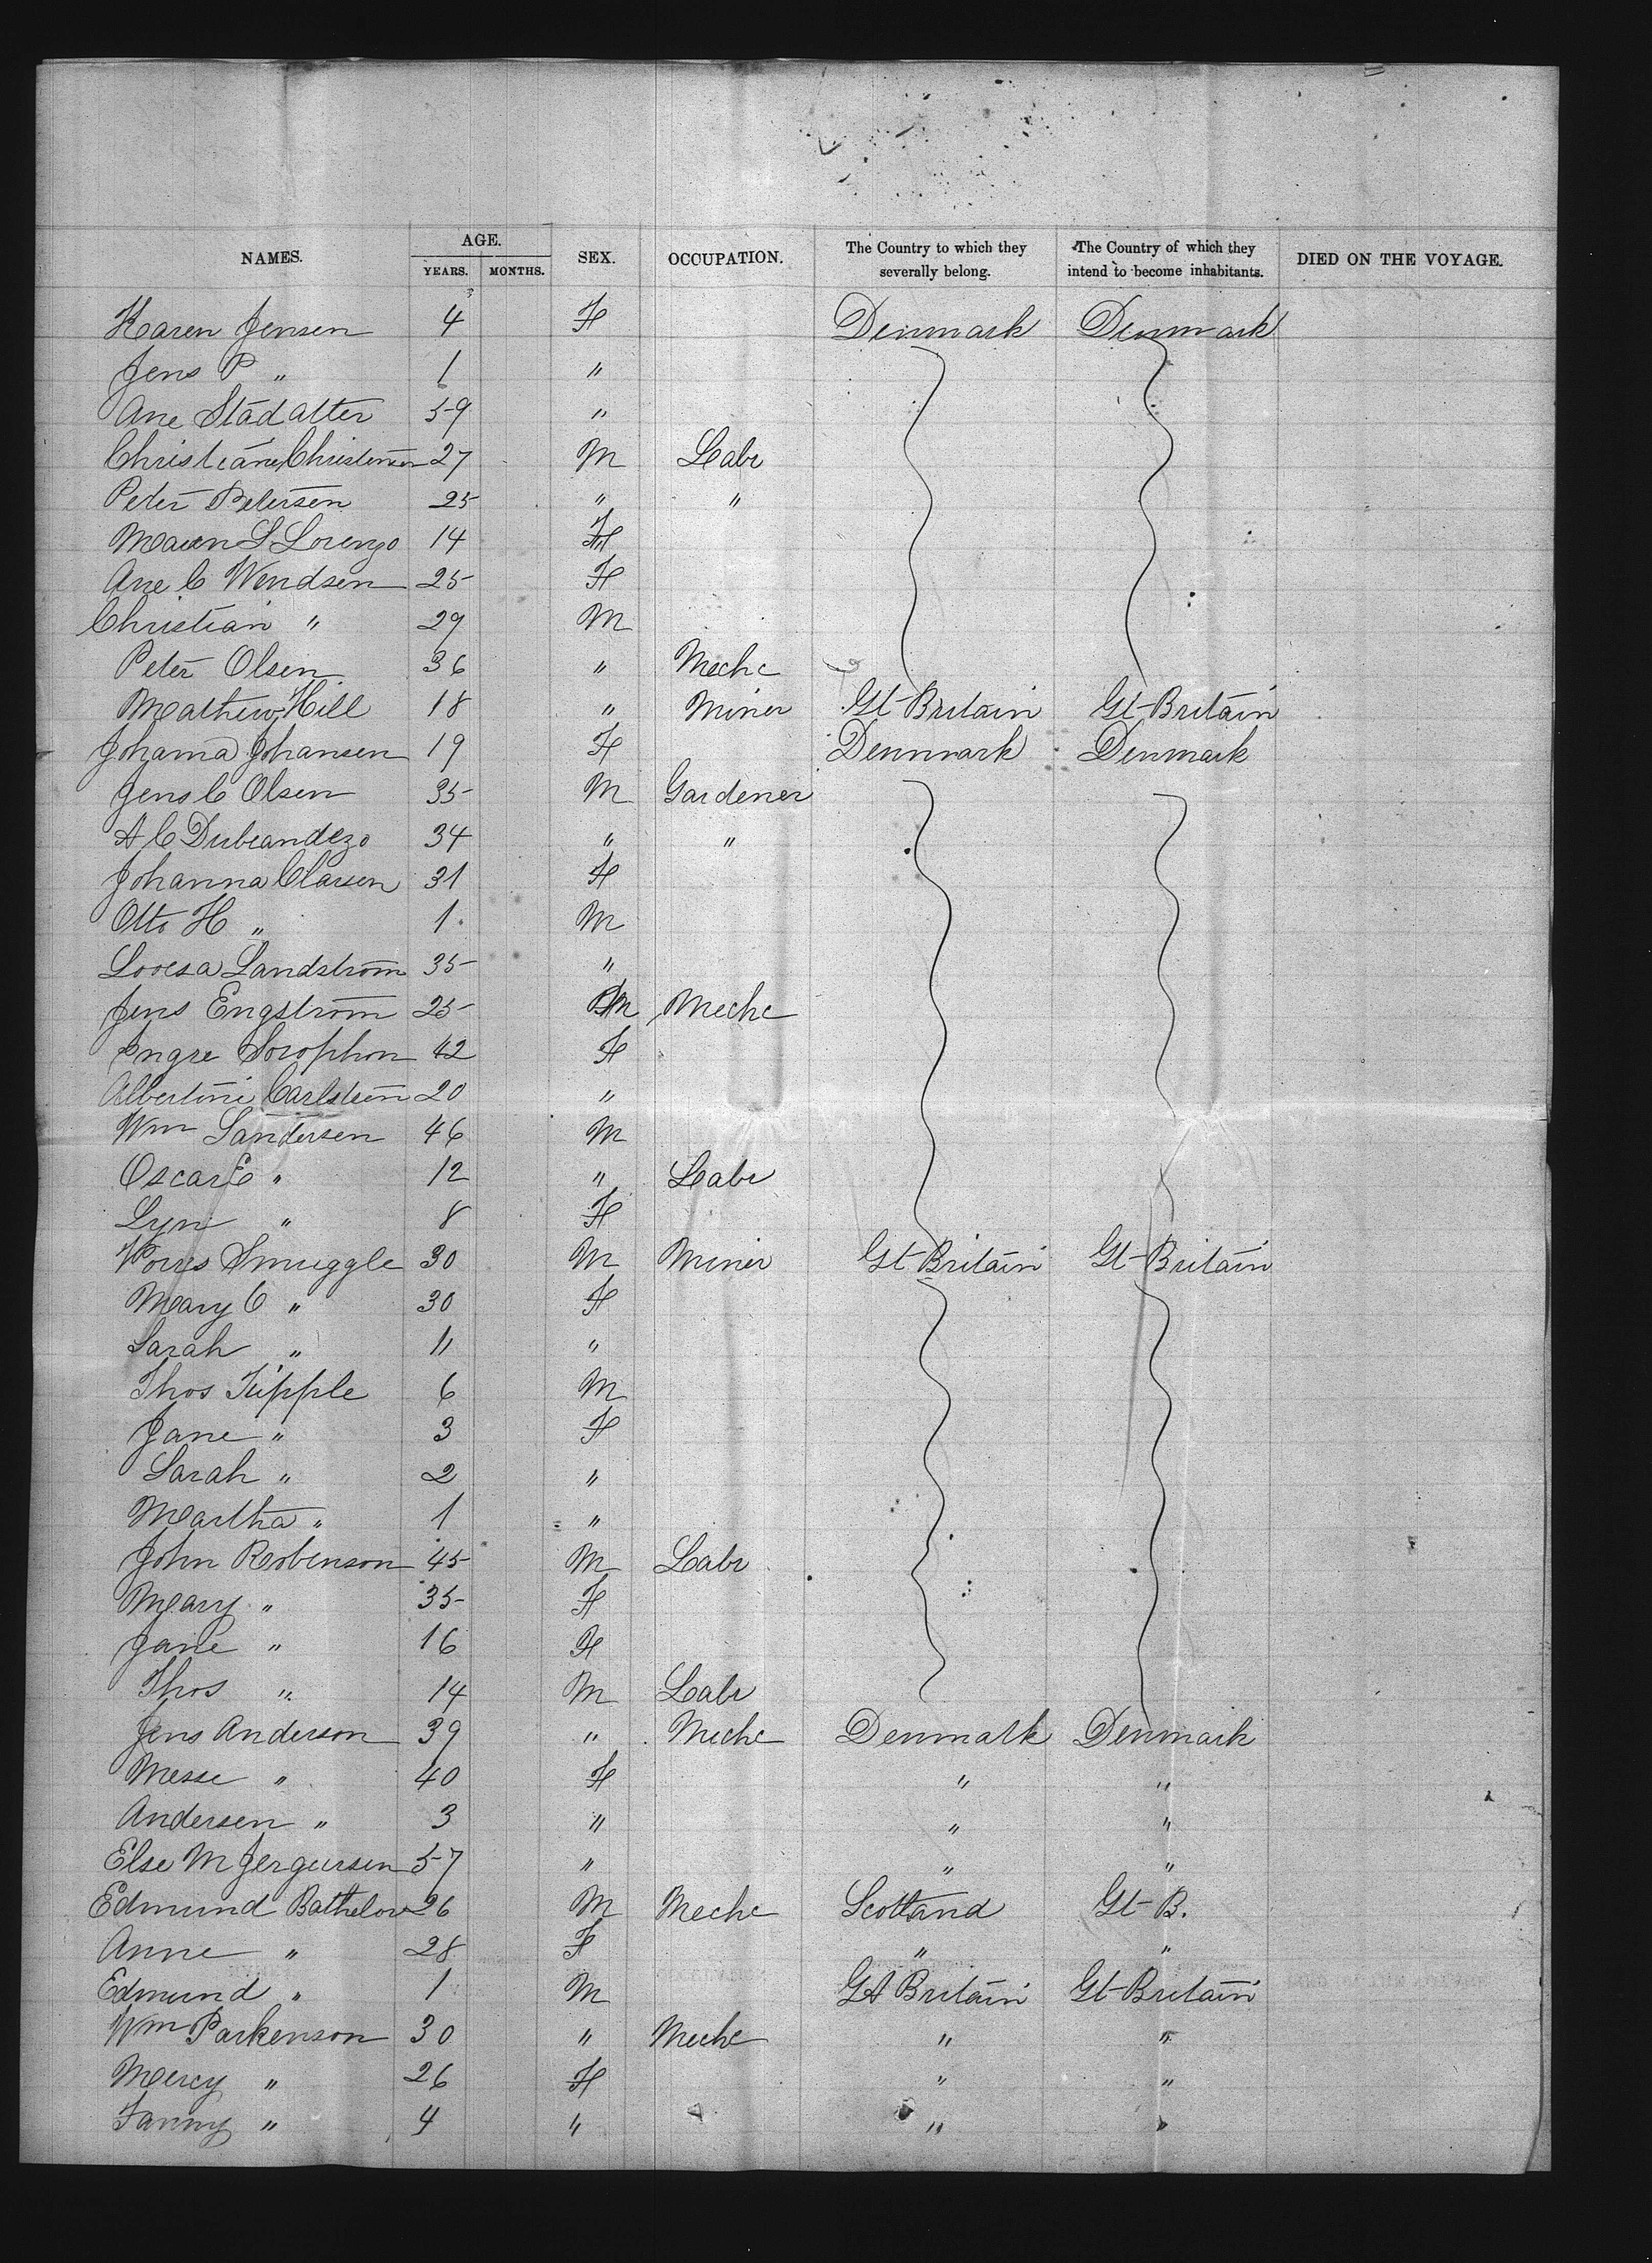 NAMES. AGE. YEARS. MONTHS. SEX. OCCUPATION. The Country to which they severally belong. The Country of which they intend to become inhabitants. DIED ON THE VOYAGE.
Karen Jensen 4 F Denmark Denmark
Jens P " 1 "
Ane Stadatter 59 "
Christian Christensen 27 M Labr
Peter Petersen 25 " "
Maren S Lorenzo 14 F
Ane C Wendsen 25 F
Christian " 29 M
Peter Olsen 36 " Mechc
Mathew Hill 18 " Miner Gt Britain Gt Britain
Johanna Johansen 19 F Denmark Denmark
Jens C Olsen 35 M Gardener
A C 34 " "
Johanna Clausen 31 F
Otto H " 1 M
Lovesa Landstrom 35 "
Jens Engstrom 25 M Mechc
Ingre 42 F
Albertine Carlstein 20 "
Wm Sandersen 46 M
Oscar E " 12 " Labr
Lyn " 8 F
Smuggle 30 M Miner Gt Britain Gt Britain
Mary C " 30 F
Sarah " 11 "
Thos Tipple 6 M
Jane " 3 F
Sarah " 2 "
Martha " 1 "
John Robenson 45 M Labr
Mary " 35 F
Jane " 16 F
Thos " 14 M Labr
Jens Anderson 39 " Mechc Denmark Denmark
Messe " 40 F " "
Andersen " 3 " " "
Else M Jergursen 57 " " "
Edmund Bathelow 26 M Mechc Scotland Gt B.
Anne " 28 F " "
Edmund " 1 M Gt Britain Gt Britain
Wm Parkenson 30 " Mechc " "
Mercy " 26 F " "
Fanny " 4 " " "